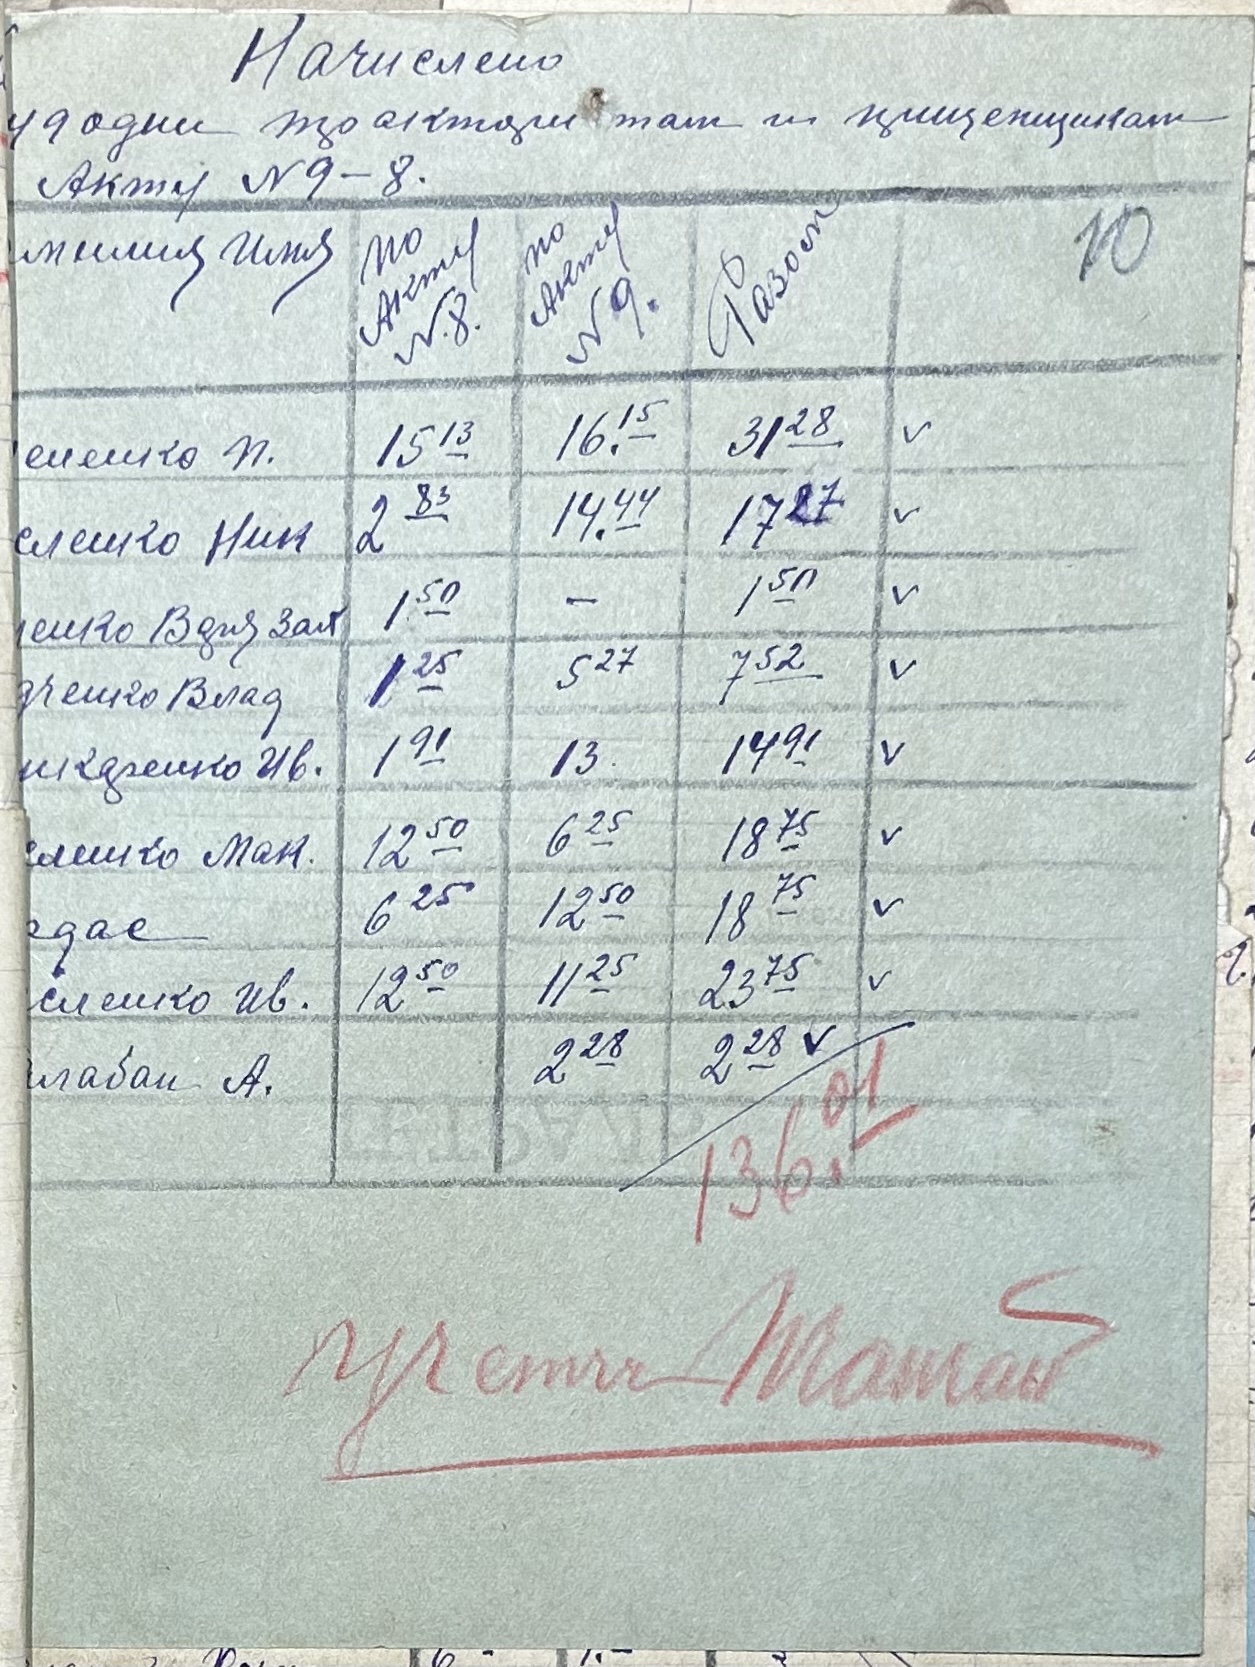 Начислено
удодни трактористам и прицепщикам
Акту № 9-8.
милия Имя По Акту №.8. по Акту №9. Разом 10
сленко П. 15 13 16.15 31 28 v
сленко Ник 2 83 14.44 17 27 v
ленко 1 50 - 1 50 v
дченко Влад 1 25 5 27 7 52 v
дченко Ив. 1 91 13. 14 91 v
сленко Мак. 12 50 6 25 18 75 v
рдас 6 25 12 50 18 75 v
сленко Ив. 12 50 11 25 23 75 v
лабан А. 2 28 2 28 v
136.01
ТЕТРАДЬ
учетчик